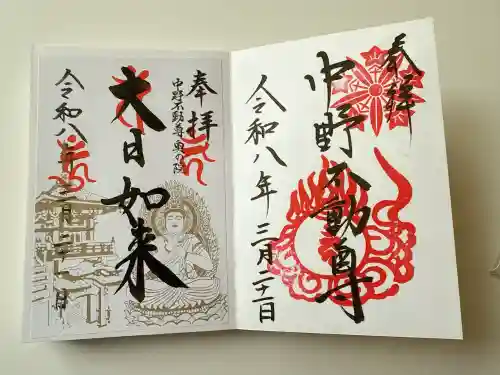 奉拝
中野不動尊
令和八年三月二十一日
奉拝
中野不動尊奥の院
大日如来
令和八年三月二十一日